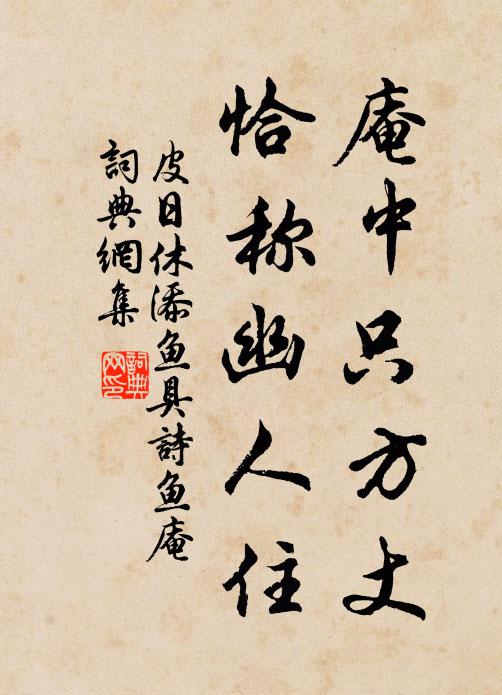 庵中只方丈
恰称幽人住
皮日休添鱼具詩鱼庵
詞典網集
詞典网印